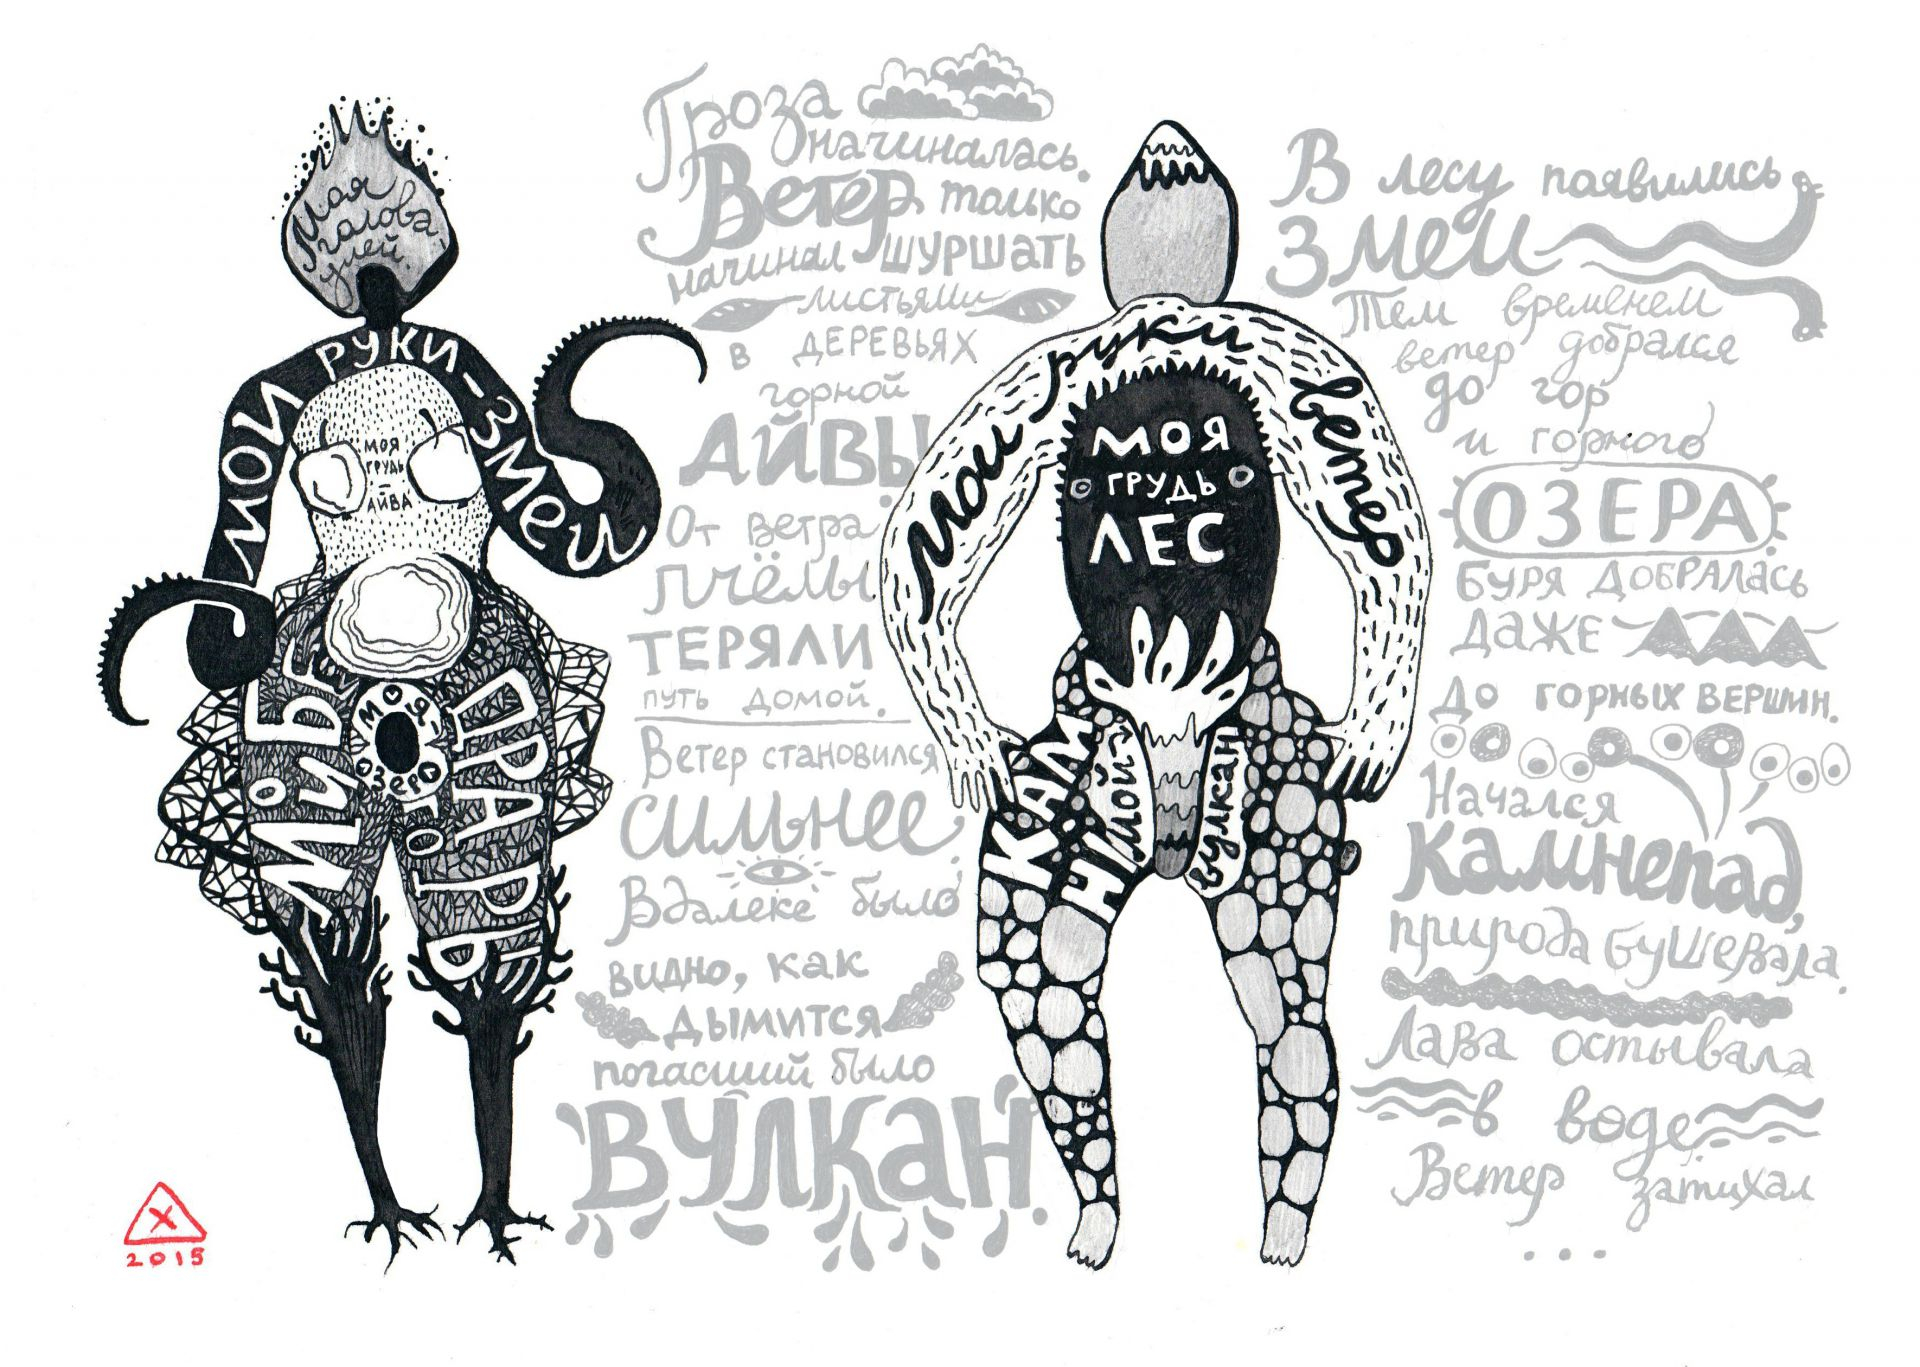 Моя
голова
улей.
МОИ РУКИ-ЗМЕИ
МОЯ
ГРУДЬ
-
АЙВА
МОИ БЁ
ДРА ГОРЫ
МОЯ
ОЗЕРО
Гроза
начиналась.
Ветер только
начинал шуршать
листьями
в деревьях
горной
АЙВЫ
От ветра
пчёлы
ТЕРЯЛИ
путь домой.
Ветер становился
сильнее.
Вдалеке было
видно, как
дымится
погасший было
ВУЛКАН.
Мои руки ветер
МОЯ
ГРУДЬ
ЛЕС
КАМ
НИ
МОЙ
ВУЛКАН
В лесу появились
Змеи
Тем временем
ветер добрался
до гор
и горного
ОЗЕРА
БУРЯ ДОБРАЛАСЬ
ДАЖЕ
ДО ГОРНЫХ ВЕРШИН.
Начался
камнепад,
природа бушевала.
Лава остывала
в воде
Ветер затихал
...
X
2015